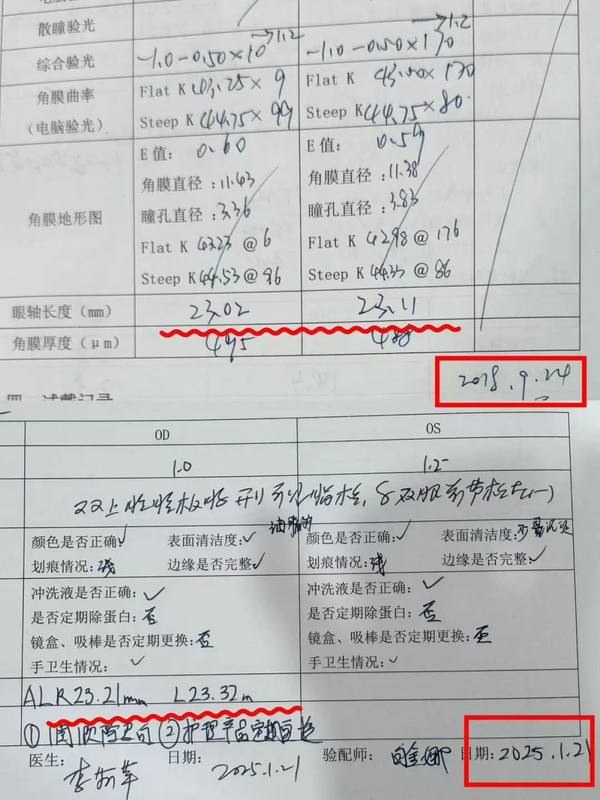 散瞳验光
综合验光 -1.0-0.50×10→1.2 -1.0-0.50×170→1.2
角膜曲率 Flat K 43.25×9 Flat K 43.50×170
(电脑验光) Steep K 44.75×99 Steep K 44.75×80
E 值: 0.60 E 值: 0.59
角膜直径:11.43 角膜直径:11.38
角膜地形图 瞳孔直径:3.36 瞳孔直径:3.83
Flat K 43.23 @ 6 Flat K 42.98 @ 176
Steep K 44.53 @ 96 Steep K 44.33 @ 86
眼轴长度(mm) 23.02 23.11
角膜厚度(μm) 495 488
2018.9.24
四、试戴记录
OD OS
1.0 1.2
颜色是否正确:✓ 表面清洁度: 颜色是否正确:✓ 表面清洁度:
划痕情况:浅 边缘是否完整✓ 划痕情况:浅 边缘是否完整:✓
冲洗液是否正确:✓ 冲洗液是否正确:✓
是否定期除蛋白:否 是否定期除蛋白:否
镜盒、吸棒是否定期更换:否 镜盒、吸棒是否定期更换:否
手卫生情况:✓ 手卫生情况:✓
AL R23.21mm L23.32m
医生: 日期:2025.1.21 验配师: 日期:2025.1.21